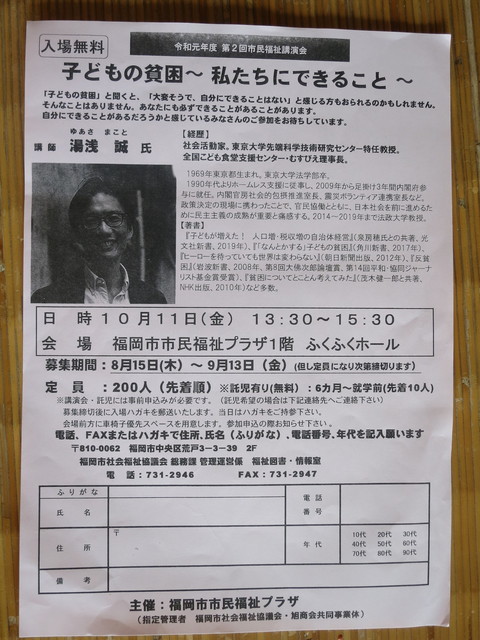 入場無料
令和元年度 第2回市民福祉講演会
子どもの貧困～ 私たちにできること ～
「子どもの貧困」と聞くと、「大変そうで、自分にできることはない」と感じる方もおられるのかもしれません。
そんなことはありません。あなたにも必ずできることがあることがあります。
自分にできることがあるだろうかと感じているみなさんのご参加をお待ちしています。
ゆあさ まこと
講師 湯浅 誠 氏
【経歴】
社会活動家。東京大学先端科学技術研究センター特任教授。
全国こども食堂支援センター・むすびえ理事長。
1969年東京都生まれ。東京大学法学部卒。
1990年代よりホームレス支援に従事し、2009年から足掛け3年間内閣府参
与に就任。内閣官房社会的包摂推進室長、震災ボランティア連携室長など。
政策決定の現場に携わったことで、官民協働とともに、日本社会を前に進めるた
めに民主主義の成熟が重要と痛感する。2014～2019年まで法政大学教授。
【著書】
『子どもが増えた！ 人口増・税収増の自治体経営』(泉房穂氏との共著、光
文社新書、2019年)、『「なんとかする」子どもの貧困』(角川新書、2017年)、
『ヒーローを待っていても世界は変わらない』(朝日新聞出版、2012年)、『反貧
困』(岩波新書、2008年、第8回大佛次郎論壇賞、第14回平和・協同ジャーナ
リスト基金賞受賞)、『貧困についてとことん考えてみた』(茂木健一郎と共著、
NHK出版、2010年)など多数。
日 時 10月11日(金) 13:30～15:30
会 場 福岡市市民福祉プラザ1階 ふくふくホール
募集期間：8月15日(木) ～ 9月13日(金) (但し定員になり次第締切ります)
定 員 ：200人(先着順) ※託児有り(無料)：6カ月～就学前(先着10人)
※講演会・託児には事前申込みが必要です。(託児希望の場合は下記連絡先へご連絡下さい)
募集締切後に入場ハガキを郵送いたします。当日はハガキをご持参下さい。
会場前方に車椅子優先スペースを用意します。参加申込の際お知らせ下さい。
電話、FAXまたはハガキで住所、氏名(ふりがな)、電話番号、年代を記入願います
〒810-0062 福岡市中央区荒戸3－3－39 2F
福岡市社会福祉協議会 総務課 管理運営係 福祉図書・情報室
電 話：731-2946 FAX：731-2947
ふりがな
氏 名
電話
番号
住 所
〒
年代
10代 20代 30代
40代 50代 60代
70代 80代 90代
備 考
主催：福岡市市民福祉プラザ
(指定管理者 福岡市社会福祉協議会・旭商会共同事業体)